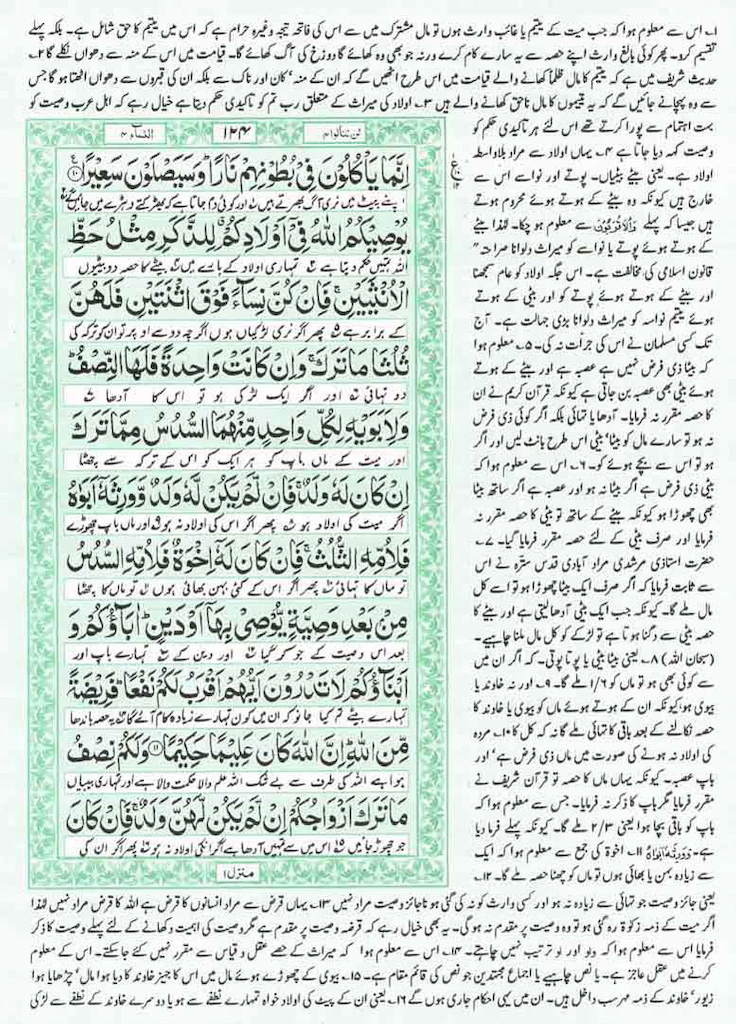 ۱۔ اس سے معلوم ہوا کہ جب میت کے یتیم یا غائب وارث ہوں تو مال مشترک میں سے اس کی فاتحہ تیجہ وغیرہ حرام ہے کہ اس میں یتیم کا حق شامل ہے۔ بلکہ پہلے
تقسیم کرو۔ پھر کوئی بالغ وارث اپنے حصہ سے یہ سارے کام کرے ورنہ جو بھی وہ کھائے گا دوزخ کی آگ کھائے گا۔ قیامت میں اس کے منہ سے دھواں نکلے گا ۲۔
حدیث شریف میں ہے کہ یتیم کا مال ظلماً کھانے والے قیامت میں اس طرح اٹھیں گے کہ ان کے منہ' کان اور ناک سے بلکہ ان کی قبروں سے دھواں اٹھتا ہو گا جس
سے وہ پہچانے جائیں گے کہ یہ یتیموں کا مال ناحق کھانے والے ہیں ۳۔ اولاد کی میراث کے متعلق رب تم کو تاکیدی حکم دیتا ہے خیال رہے کہ اہل عرب وصیت کو
بہت اہتمام سے پورا کرتے تھے اس لئے ہر تاکیدی حکم کو
وصیت کہہ دیا جاتا ہے ۴۔ یہاں اولاد سے مراد بلاواسطہ
اولاد ہے۔ یعنی بیٹے بیٹیاں۔ پوتے اور نواسے اس سے
خارج ہیں کیونکہ وہ بیٹے کے ہوتے ہوئے محروم ہوتے
ہیں جیسا کہ پہلے وَالْاَقْرَبُوْنَ سے معلوم ہو چکا۔ لہٰذا بیٹے
کے ہوتے ہوئے پوتے یا نواسے کو میراث دلوانا صراحتہ"
قانون اسلامی کی مخالفت ہے۔ اس جگہ اولاد کو عام سمجھنا
اور بیٹے کے ہوتے ہوئے پوتے کو اور بیٹی کے ہوتے
ہوئے یتیم نواسہ کو میراث دلوانا بڑی جہالت ہے۔ آج
تک کسی مسلمان نے اس کی جرأت نہ کی۔ ۵۔ معلوم ہوا
کہ بیٹا ذی فرض نہیں ہے عصبہ ہے اور بیٹے کے ہوتے
ہوئے بیٹی بھی عصبہ بن جاتی ہے کیونکہ قرآن کریم نے ان
کا حصہ مقرر نہ فرمایا۔ آدھا یا تہائی بلکہ اگر کوئی ذی فرض
نہ ہو تو سارے مال کو بیٹا' بیٹی اس طرح بانٹ لیں اور اگر
ہو تو اس سے بچے ہوئے کو۔ ۶۔ اس سے معلوم ہوا کہ
بیٹی ذی فرض ہے اگر بیٹا نہ ہو اور عصبہ ہے اگر ساتھ بیٹا
بھی چھوڑا ہو کیونکہ بیٹے کے ساتھ تو بیٹی کا حصہ مقرر نہ
فرمایا اور صرف بیٹی کے لئے حصہ مقرر فرمایا گیا۔ ۷۔
حضرت استاذی مرشدی مراد آبادی قدس سترہ نے اس
سے ثابت فرمایا کہ اگر صرف ایک بیٹا چھوڑا ہو تو اسے کل
مال ملے گا۔ کیونکہ جب ایک بیٹی آدھا لیتی ہے اور بیٹے کا
حصہ بیٹی سے دگنا ہوتا ہے تو لڑکے کو کل مال ملنا چاہیے۔
(سبحان اللہ) ۸۔ یعنی بیٹا بیٹی یا پوتا پوتی۔ کہ اگر ان میں
سے کوئی بھی ہو تو ماں کو ۱/۶ ملے گا۔ ۹۔ اور نہ خاوند یا
بیوی ہو' کیونکہ ان کے ہوتے ہوئے ماں کو بیوی یا خاوند کا
حصہ نکالنے کے بعد باقی کا تہائی ملے گا نہ کہ کل کا ۱۰۔ مردہ
کی اولاد نہ ہونے کی صورت میں ماں ذی فرض ہے' اور
باپ عصبہ۔ کیونکہ یہاں ماں کا حصہ تو قرآن شریف نے
مقرر فرمایا مگر باپ کا ذکر نہ فرمایا۔ جس سے معلوم ہوا کہ
باپ کو باقی بچا ہوا یعنی ۲/۳ ملے گا۔ کیونکہ پہلے فرما دیا
ہے۔ وَوَرِثَهٗٓ اَبَوٰهُ ۱۱۔ اخوۃ کی جمع سے معلوم ہوا کہ ایک
سے زیادہ بہن یا بھائی ہوں تو ماں کو چھٹا حصہ ملے گا۔ ۱۲۔
لن تنالوا ۴
۱۲۴
النساء ۴
اِنَّمَا يَاْكُلُوْنَ فِيْ بُطُوْنِهِمْ نَارًا وَسَيَصْلَوْنَ سَعِيْرًا ۱۰
اپنے پیٹ میں نری آگ بھرتے ہیں اور کوئی دم جاتا ہے کہ بھڑکتے دھڑے میں جائیں گے
يُوْصِيْكُمُ اللّٰهُ فِيْٓ اَوْلَادِكُمْ لِلذَّكَرِ مِثْلُ حَظِّ
اللہ تمہیں حکم دیتا ہے تمہاری اولاد کے بارے میں بیٹے کا حصہ دو بیٹیوں
الْاُنْثَيَيْنِ فَاِنْ كُنَّ نِسَآءً فَوْقَ اثْنَتَيْنِ فَلَهُنَّ
کے برابر ہے پھر اگر نری لڑکیاں ہوں اگرچہ دو سے اوپر تو ان کو ترکہ کی
ثُلُثَا مَا تَرَكَ وَاِنْ كَانَتْ وَاحِدَةً فَلَهَا النِّصْفُ
دو تہائی اور اگر ایک لڑکی ہو تو اس کا آدھا
وَلِاَبَوَيْهِ لِكُلِّ وَاحِدٍ مِّنْهُمَا السُّدُسُ مِمَّا تَرَكَ
اور میت کے ماں باپ کو ہر ایک کو اس کے ترکہ سے چھٹا
اِنْ كَانَ لَهٗ وَلَدٌ فَاِنْ لَّمْ يَكُنْ لَّهٗ وَلَدٌ وَّوَرِثَهٗٓ اَبَوٰهُ
اگر میت کی اولاد ہو پھر اگر اس کی اولاد نہ ہو اور ماں باپ چھوڑے
فَلِاُمِّهِ الثُّلُثُ فَاِنْ كَانَ لَهٗٓ اِخْوَةٌ فَلِاُمِّهِ السُّدُسُ
تو ماں کا تہائی پھر اگر اس کے کئی بہن بھائی ہوں تو ماں کا چھٹا
مِنْ بَعْدِ وَصِيَّةٍ يُّوْصِيْ بِهَآ اَوْ دَيْنٍ اٰبَآؤُكُمْ وَ
بعد اس وصیت کے جو کر گیا اور دین کے تمہارے باپ اور
اَبْنَآؤُكُمْ لَا تَدْرُوْنَ اَيُّهُمْ اَقْرَبُ لَكُمْ نَفْعًا فَرِيْضَةً
تمہارے بیٹے تم کیا جانو کہ ان میں کون تمہارے زیادہ کام آئے گا یہ حصہ باندھا
مِّنَ اللّٰهِ اِنَّ اللّٰهَ كَانَ عَلِيْمًا حَكِيْمًا ۱۱ وَلَكُمْ نِصْفُ
ہوا ہے اللہ کی طرف سے بے شک اللہ علم والا حکمت والا ہے اور تمہاری بیبیاں
مَا تَرَكَ اَزْوَاجُكُمْ اِنْ لَّمْ يَكُنْ لَّهُنَّ وَلَدٌ فَاِنْ كَانَ
جو چھوڑ جائیں اس میں سے تمہیں آدھا ہے اگر انکی اولاد نہ ہو پھر اگر ان کی
منزل ۱
یعنی جائز وصیت جو تہائی سے زیادہ نہ ہو اور کسی وارث کو نہ کی گئی ہو ناجائز وصیت مراد نہیں ۱۳۔ یہاں قرض سے مراد انسانوں کا قرض ہے اللہ کا قرض مراد نہیں لہٰذا
اگر میت کے ذمہ زکوٰۃ رہ گئی ہو تو وہ وصیت پر مقدم نہ ہو گی۔ یہ بھی خیال رہے کہ قرضہ وصیت پر مقدم ہے مگر وصیت کی اہمیت دکھانے کے لئے پہلے وصیت کا ذکر
فرمایا اس سے معلوم ہوا کہ واو اور او ترتیب نہیں چاہتے۔ ۱۴۔ اس سے معلوم ہوا کہ میراث کے حصے عقل و قیاس سے مقرر نہیں کئے جا سکتے۔ اس کے معلوم
کرنے میں عقل عاجز ہے۔ یا نص چاہیے یا اجماع مجتہدین جو نص کی قائم مقام ہے۔ ۱۵۔ بیوی کے چھوڑے ہوئے مال میں اس کا جہیز خاوند کا دیا ہوا مال' چڑھایا ہوا
زیور' خاوند کے ذمہ مہر سب داخل ہیں۔ ان میں یہی احکام جاری ہوں گے ۱۶۔ یعنی ان کے پیٹ کی اولاد خواہ تمہارے نطفے سے ہو یا دوسرے خاوند کے نطفے سے لڑکی